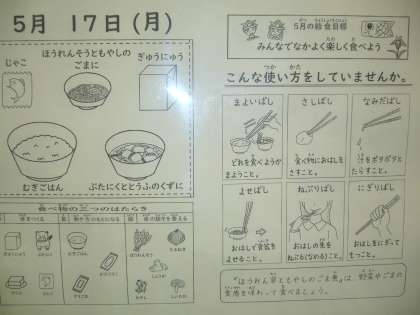 5月 17日(月)
ほうれんそうともやしの
ごまに
じゃこ
ぎゅうにゅう
むぎごはん
ぶたにくととうふのくずに
食べ物の三つのはたらき
5月の給食目標
みんなでなかよく楽しく食べよう
こんな使い方をしていませんか。
まよいばし
どれを食べようか
まようこと。
さしばし
食べ物におはしを
さすこと。
なみだばし
汁をポタポタと
たらすこと。
よせばし
おはしで食器を
よせること。
ねぶりばし
おはしの先を
ねぶる(なめる)こと。
にぎりばし
おはしをにぎって
もつこと。
"ほうれん草ともやしのごま煮"は、野菜やごまの
食感を味わって食べましょう。